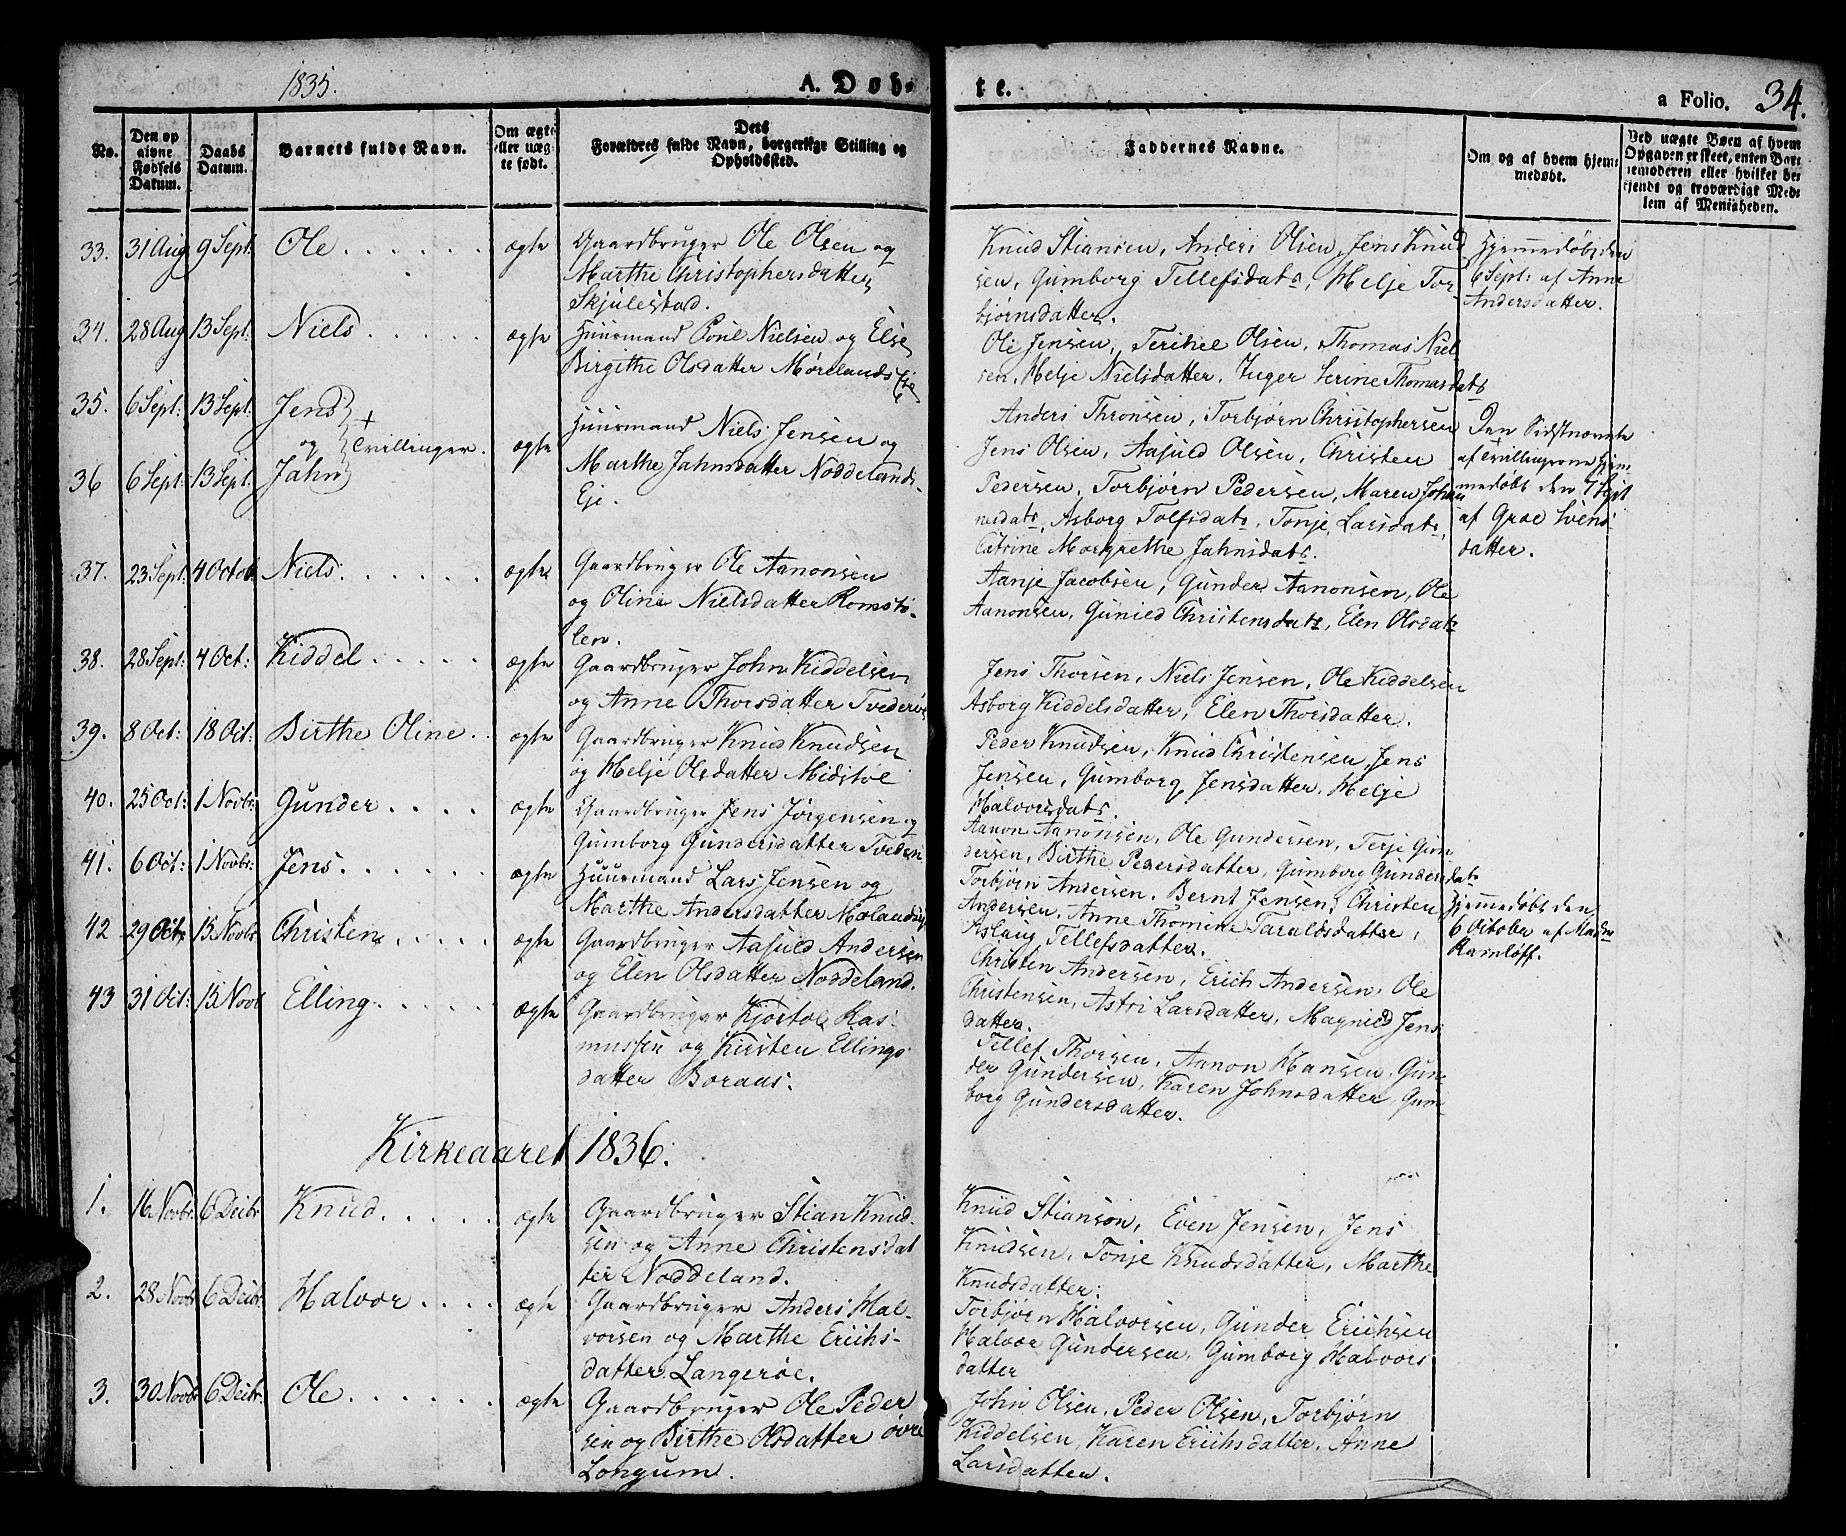 1835.
A. Døb-
te.
a Folio. 34.
No.
Den op
givne
Fødsels
Datum.
Daabs
Datum.
Barnets fulde Navn.
Om ægte
eller uæg-
te født.
Dets
Forældres fulde Navn, borgerlige Stilling og
Opholdssted.
Faddernes Navne.
Om og af hvem hjem-
medøbt.
Ved uægte Børn af hvem
Opgaven er skeet, enten Bar-
nemoderen eller hvilket be-
kjendt og troværdigt Med-
lem af Menigheden.
33. 31 Aug 9 Sept: Ole . . . . . ægte
Gaardbruger Ole Olsen og
Marthe Christophersdatter
Skjulestad.
Knud Stiansen, Anders Olsen, Jens Knud
sen, Gumborg Tellefsdatr, Helje Tor-
bjørnsdatter.
Hjemmedøbt den
6 Sept: af Anne
Andersdatter.
34. 28 Aug 13 Sept. Niels . . . . . ægte
Huusmand Poul Nielsen og Else
Birgithe Olsdatter Mørelands Eje
Ole Jensen, Olsen, Thomas Niel
sen, Helje Nielsdatter, Inger Serine Thomasdatr
35. 6 Sept: 13 Sept: Jens
og + Tvillinger. ægte
36 6 Sept: 13 Sept. Jahn
Huusmand Niels Jensen og
Marthe Jahnsdatter Noddelands
Eje.
Anders Thronsen, Torbjørn Christophersen
Jens Olsen, Aasuld Olsen, Christen
Pedersen, Torbjørn Pedersen, Maren Johan
nesdatr, Asborg Tolfsdatr, Tonje Larsdatr,
Catrine Margrethe Jahnsdatr.
Den Sidstnævnte
af Tvillingerne hjem
medøbt den 7 Sept
af Groe Svens
datter.
37. 23 Sept: 4 Octob: Niels . . . . . . ægte
Gaardbruger Ole Aanonsen
og Oline Nielsdatter Romstø-
len.
Aanje Jacobsen, Gunder Aanonsen, Ole
Aanonsen, Gunild Christensdatr, Elen Olsdatr
38. 28 Sept: 4 Oct: Kiddel . . . . . ægte
Gaardbruger John Kiddelsen
og Anne Thorsdatter
Jens Thorsen, Niels Jensen, Ole Kiddelsen
Asborg Kiddelsdatter, Elen Thorsdatter.
39. 8 Oct: 18 Oct: Birthe Oline . . ægte
Gaardbruger Knud Knudsen
og Helje Olsdatter Midstøe
Peder Knudsen, Knud Christensen, Jens
Jensen, Gumborg Jensdatter, Helje
Halvorsdatr.
40. 25 Oct: 1 Novbr: Gunder . . . . ægte
Gaardbruger Jens Jørgensen og
Gumborg Gundersdatter Tveden
Aanon Aanonsen, Ole Gundersen, Terje Gun
dersen, Birthe Pedersdatter, Gumborg Gundersdatr
41. 6 Oct: 1 Novbr: Jens . . . . . . ægte
Huusmand Lars Jensen og
Marthe Andersdatter
Torbjørn Andersen, Bernt Jensen, Christen
Andersen, Anne Thomine Taraldsdatter,
Aslaug Tellefsdatter.
Hjemmedøbt den
6 October af
Ramløff.
42 29 Oct: 15 Novbr Christen . . . . . ægte
Gaardbruger Aasuld Andersen
og Elen Olsdatter Noddeland.
Christen Andersen, Erich Andersen, Ole
Christensen, Astri Larsdatter, Magnild Jens
datter.
43 31 Oct: 15 Novbr Elling . . . . . ægte
Gaardbruger Kjøstol Ras-
mussen og Kirsten Ellings
datter Boraas.
Tellef Thorsen, Aanon Hansen, Gun-
der Gundersen, Karen Johnsdatter, Gum-
borg Gundersdatter.
Kirkeaaret 1836.
1. 16 Novbr. 6 Decbr Knud . . . . . ægte
Gaardbruger Stian Knud-
sen og Anne Christensdat
ter Noddeland.
Knud Stiansøn, Even Jensen, Jens
Knudsen, Tonje Knudsdatter, Marthe
Knudsdatter.
2. 28 Novbr 6 Decbr. Halvor . . . . ægte
Gaardbruger Anders Hal-
vorsen og Marthe Erichs-
datter Langerøe.
Torbjørn Halvorsen, Gunder Erichsen
Halvor Gundersen, Gumborg Halvors
datter
3. 30 Novbr 6 Decbr. Ole . . . . . . ægte
Gaardbruger Ole Peder
sen og Birthe Olsdatter øvre
Longum.
John Olsen, Peder Olsen, Torbjørn
Kiddelsen, Karen Erichsdatter, Anne
Larsdatter.